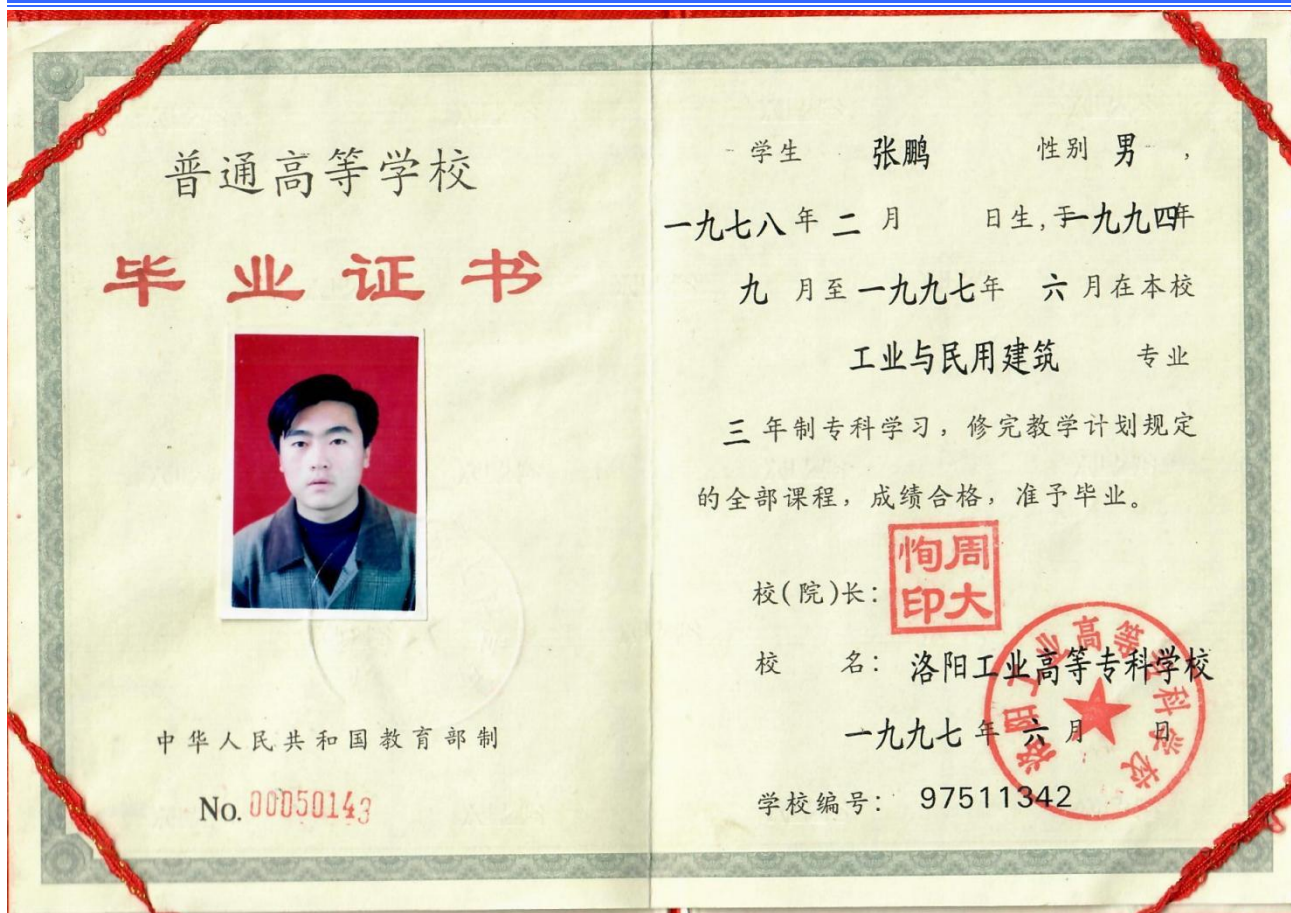 普通高等学校
毕业证书
中华人民共和国教育部制
No. 00050143
学生 张鹏 性别 男,
一九七八年 二 月 日生,于一九九四年
九 月至一九九七年 六 月在本校
工业与民用建筑 专业
三 年制专科学习，修完教学计划规定
的全部课程，成绩合格，准予毕业。
校(院)长: 周大恂印
校 名: 洛阳工业高等专科学校
一九九七年 六 月 日
洛阳工业高等专科学校
学校编号: 97511342